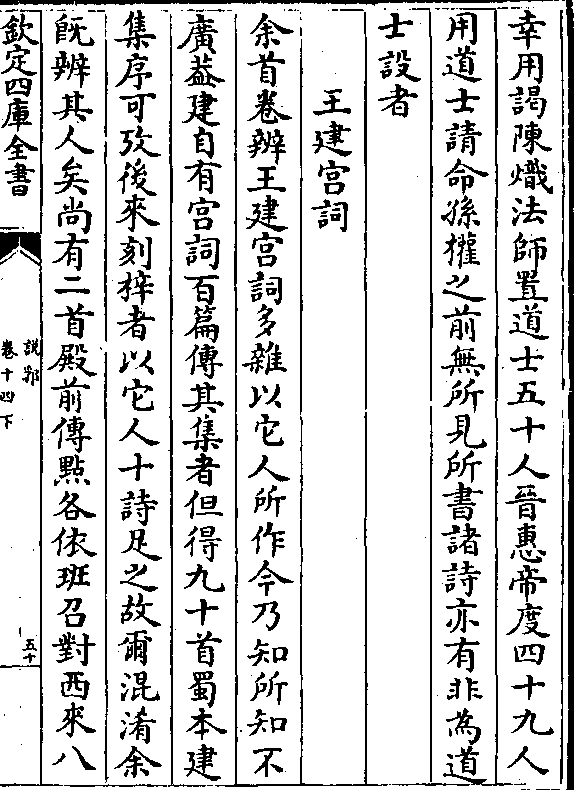 幸用謁陳熾法師置道士五十人晉惠帝度四十九人
用道士請命孫權之前無所見所書諸詩亦有非為道
士設者
王建宫詞
余首卷辨王建宫詞多雜以它人所作今乃知所知不
廣葢建自有宫詞百篇傳其集者但得九十首蜀本建
集序可攷後來刻梓者以它人十詩足之故爾混淆余
既辨其人矣尚有二首殿前傳點各依班召對西來八
欽定四庫全書
說郛
卷十四下
五十